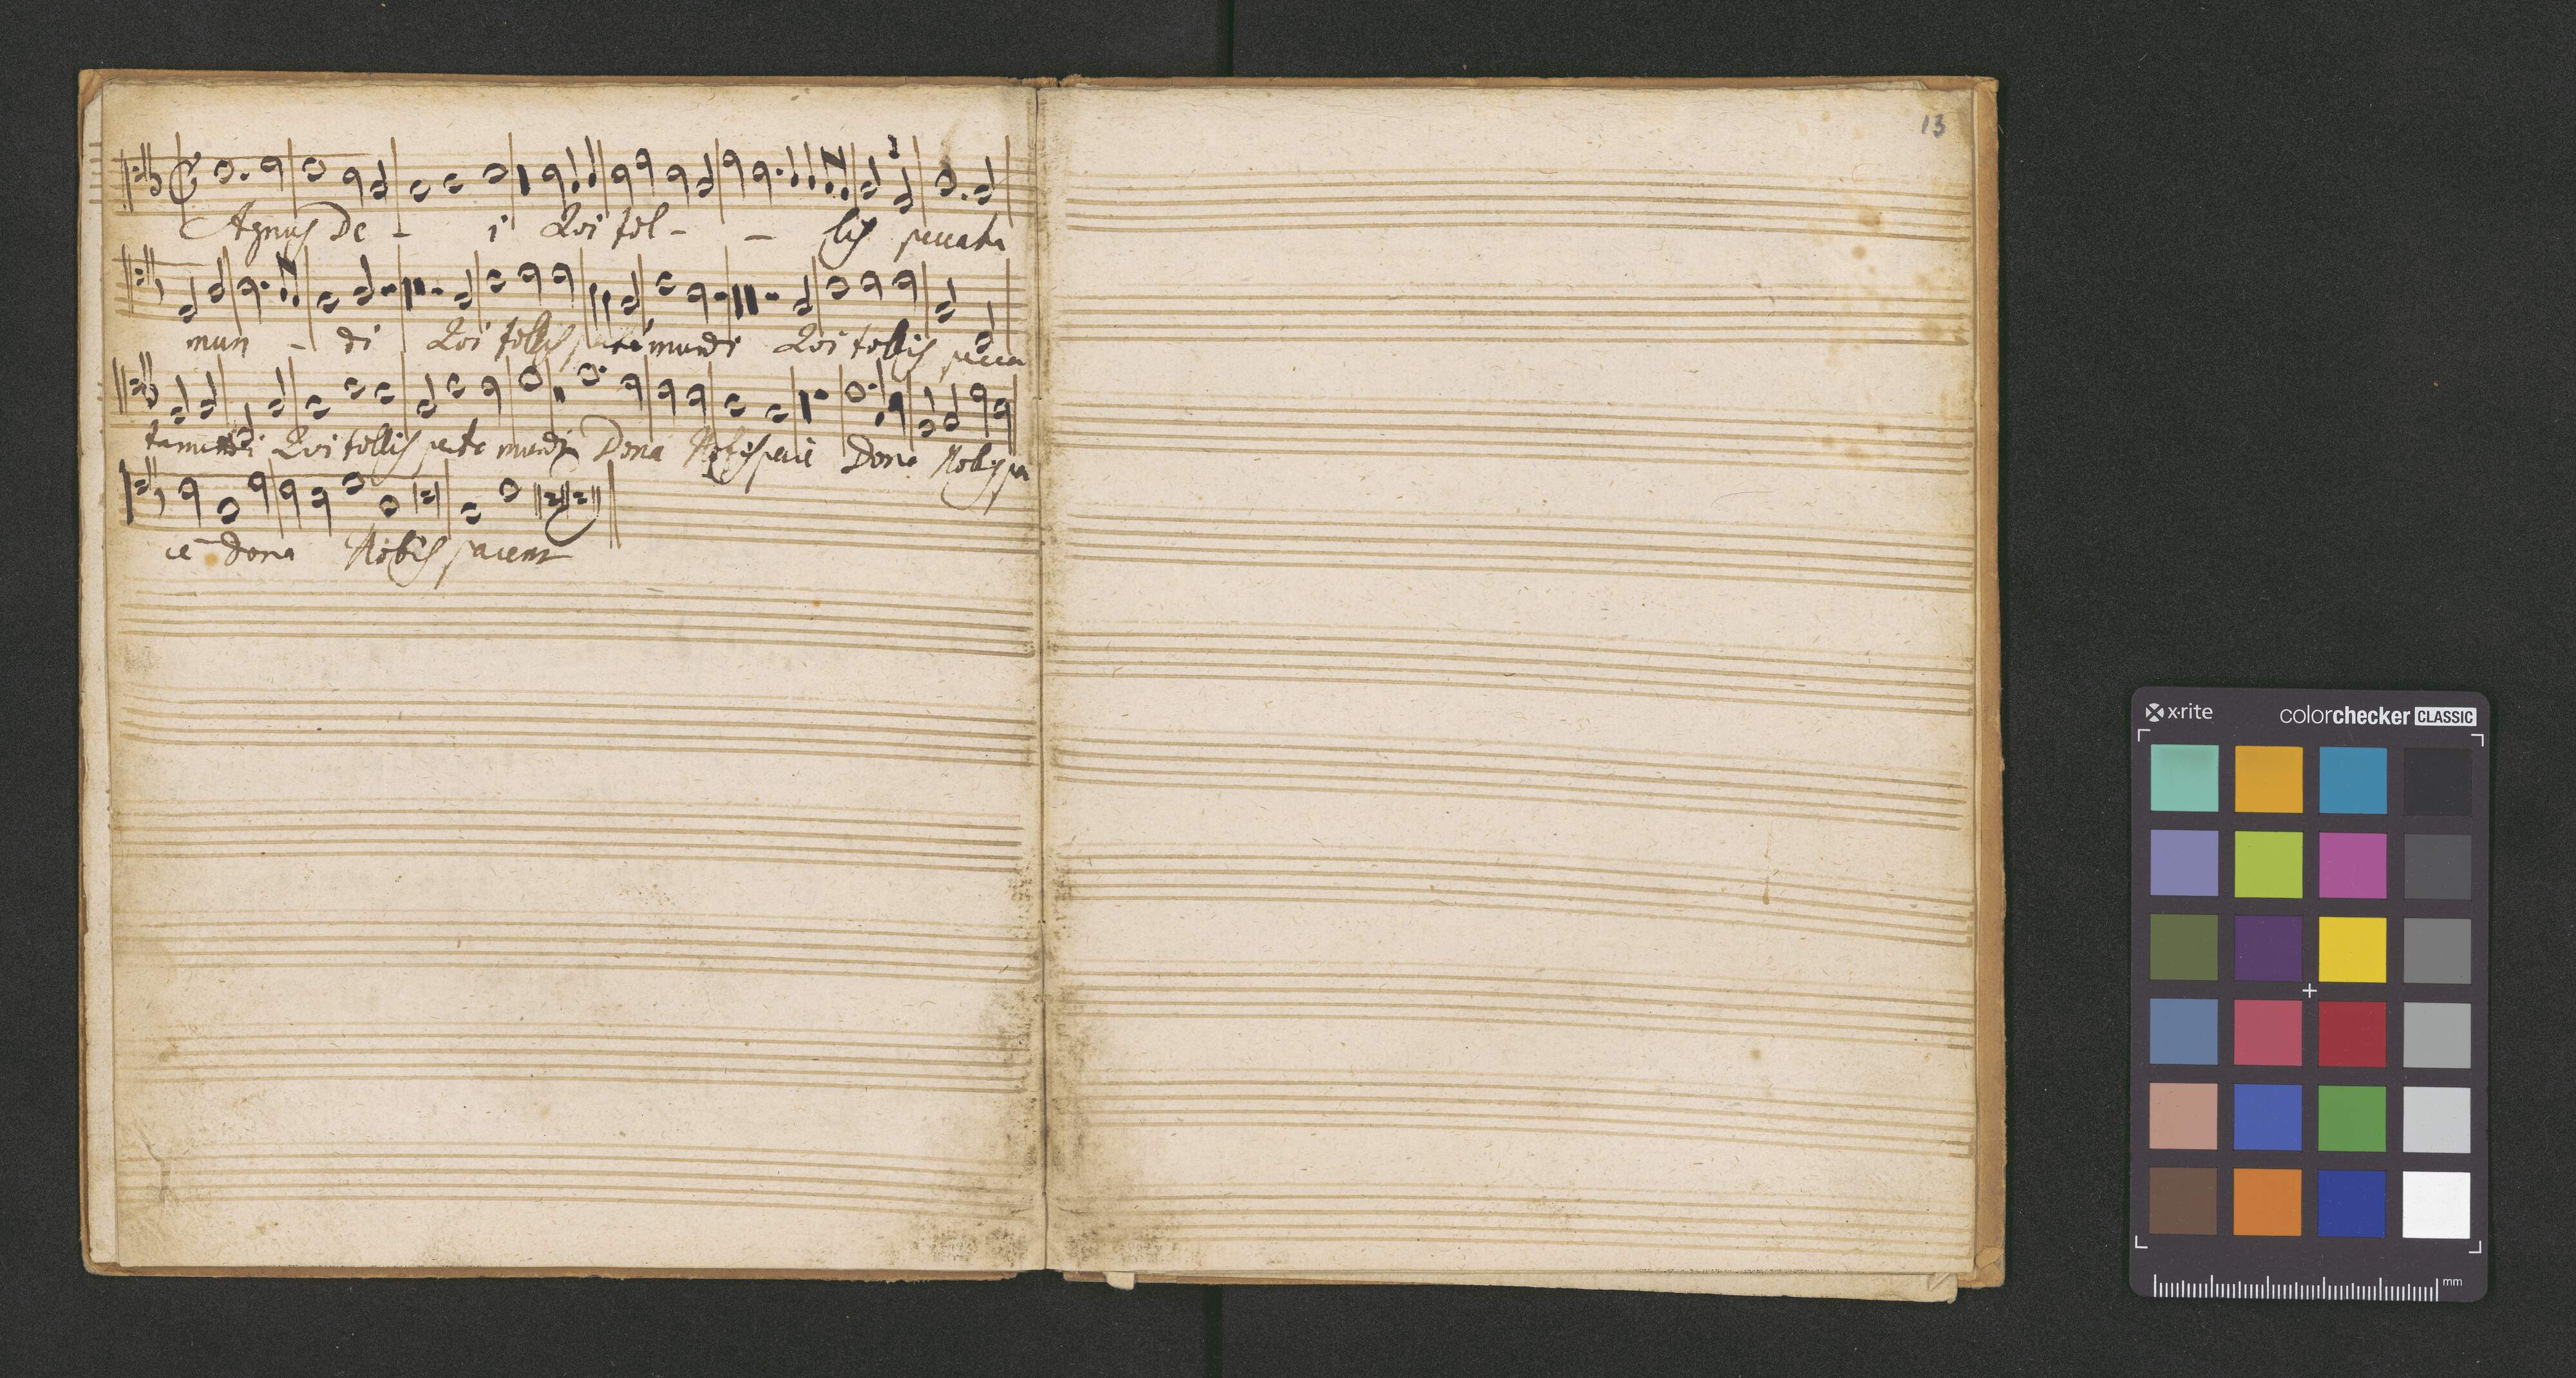 Agnus De - i Qui tol - - lis peccata
mun - di Qui tollis mundi Qui tollis pecca
ta mundi Qui tollis pcta mundi Dona Nobis pacē Dona Nobis pa
cē dona Nobis pacem
13
x·rite colorchecker CLASSIC
mm